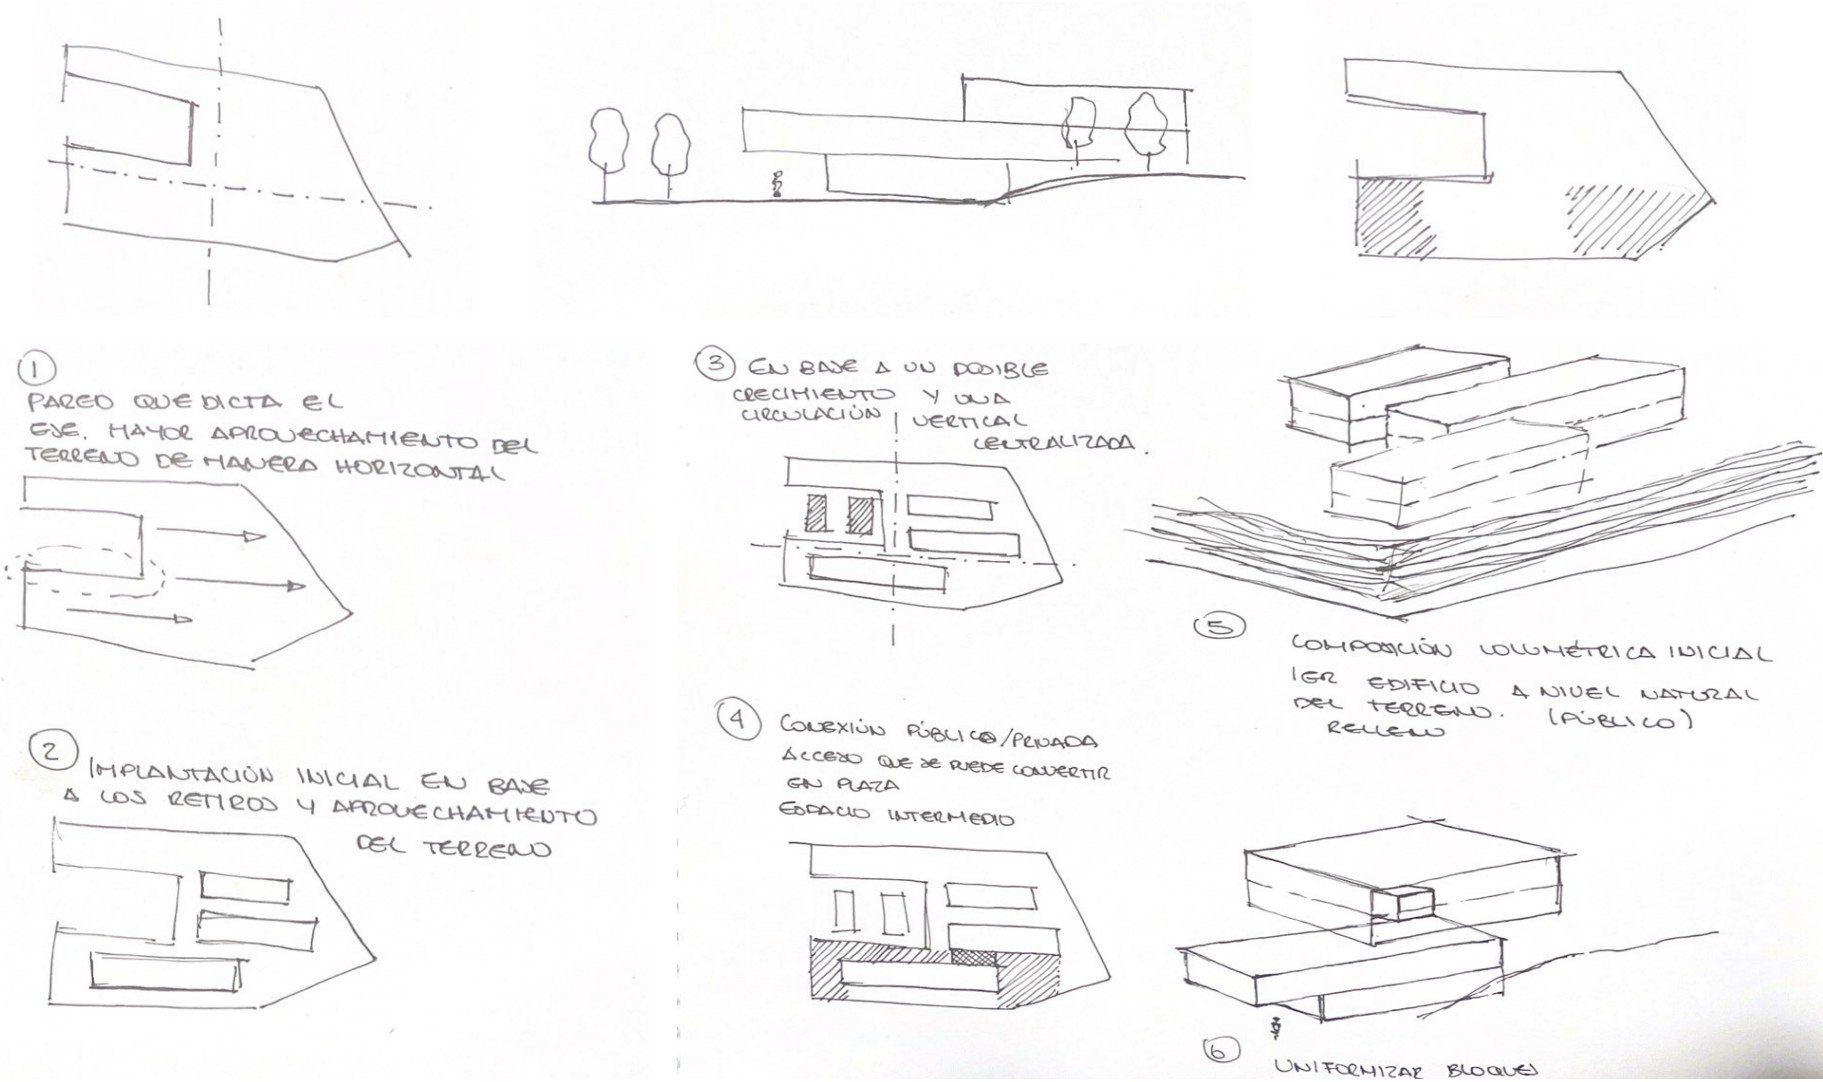 1
PAREO QUE DICTA EL
EJE. MAYOR APROVECHAMIENTO DEL
TERRENO DE MANERA HORIZONTAL
2
IMPLANTACIÓN INICIAL EN BASE
A LOS RETIROS Y APROVECHAMIENTO
DEL TERRENO
3 EN BASE A UN POSIBLE
CRECIMIENTO Y UNA
CIRCULACIÓN VERTICAL
CENTRALIZADA.
4 CONEXIÓN PÚBLICO/PRIVADA
ACCESO QUE SE PUEDE CONVERTIR
EN PLAZA
ESPACIO INTERMEDIO
5
COMPOSICIÓN VOLUMÉTRICA INICIAL
1ER EDIFICIO A NIVEL NATURAL
DEL TERRENO. (PÚBLICO)
RELLENO
6
UNIFORMIZAR BLOQUES